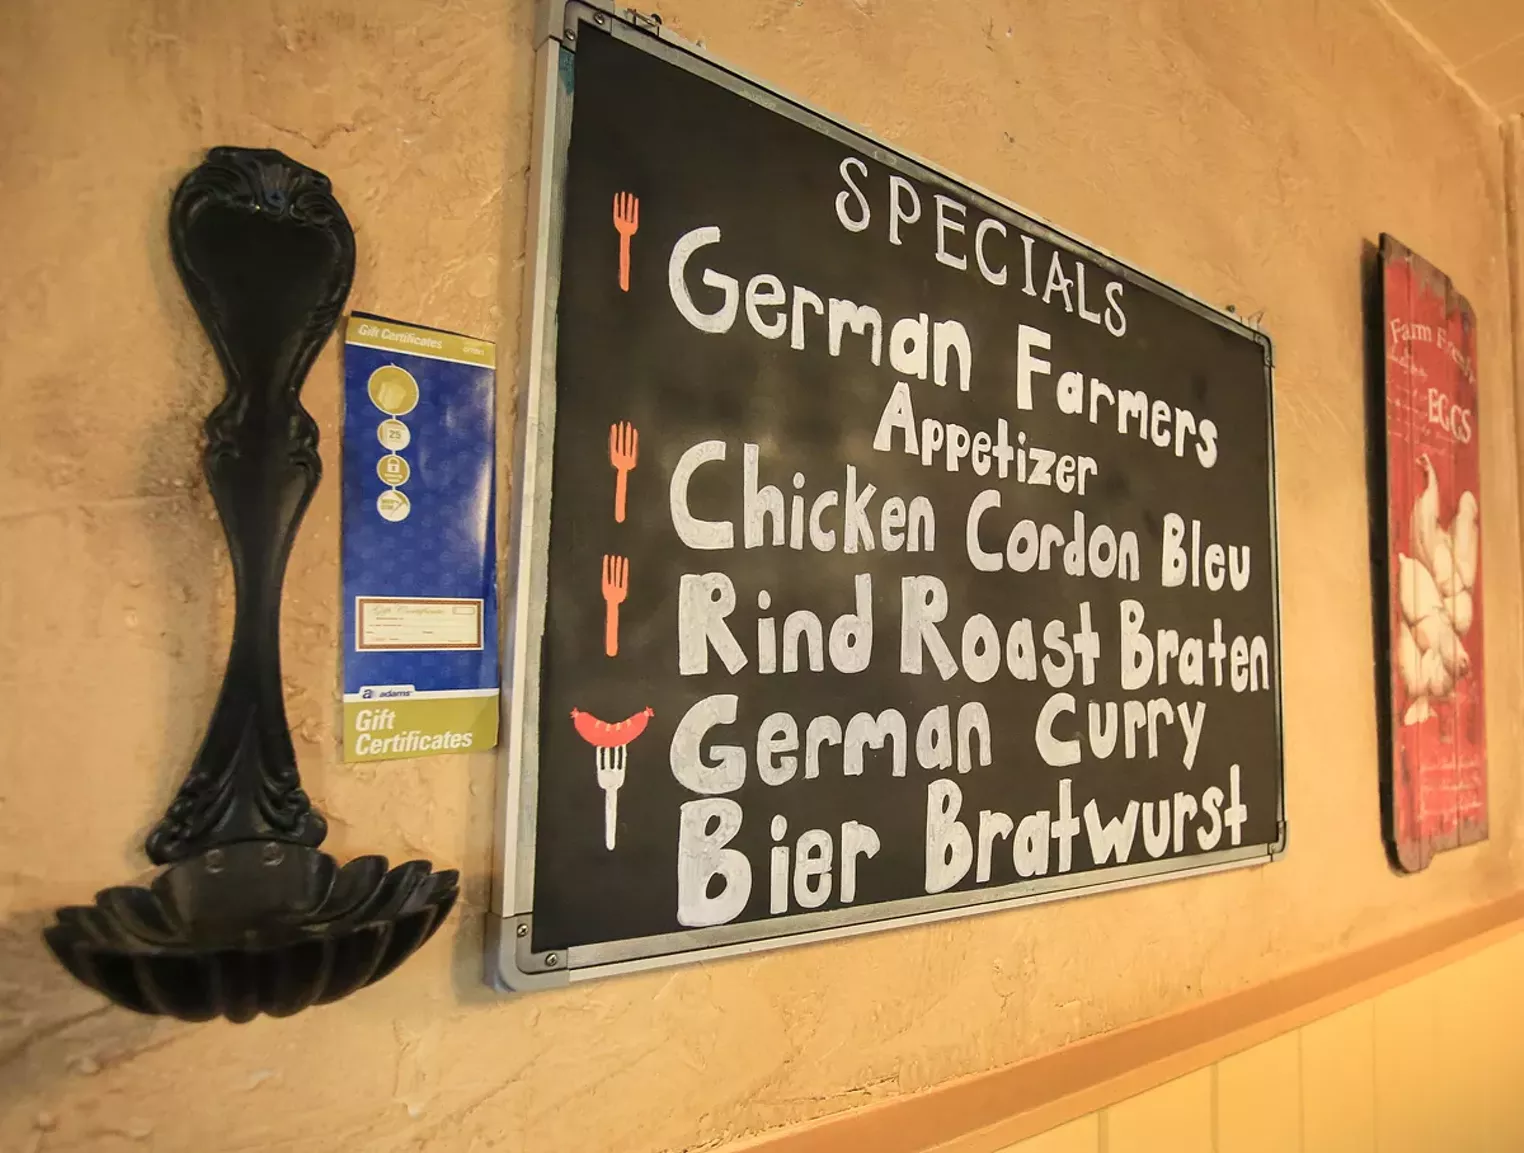 SPECIALS
German Farmers
Appetizer
Chicken Cordon Bleu
Rind Roast Braten
German Curry
Bier Bratwurst
Gift Certificates
25
Gift Certificate
adams
Gift
Certificates
Farm Fresh
EGGS